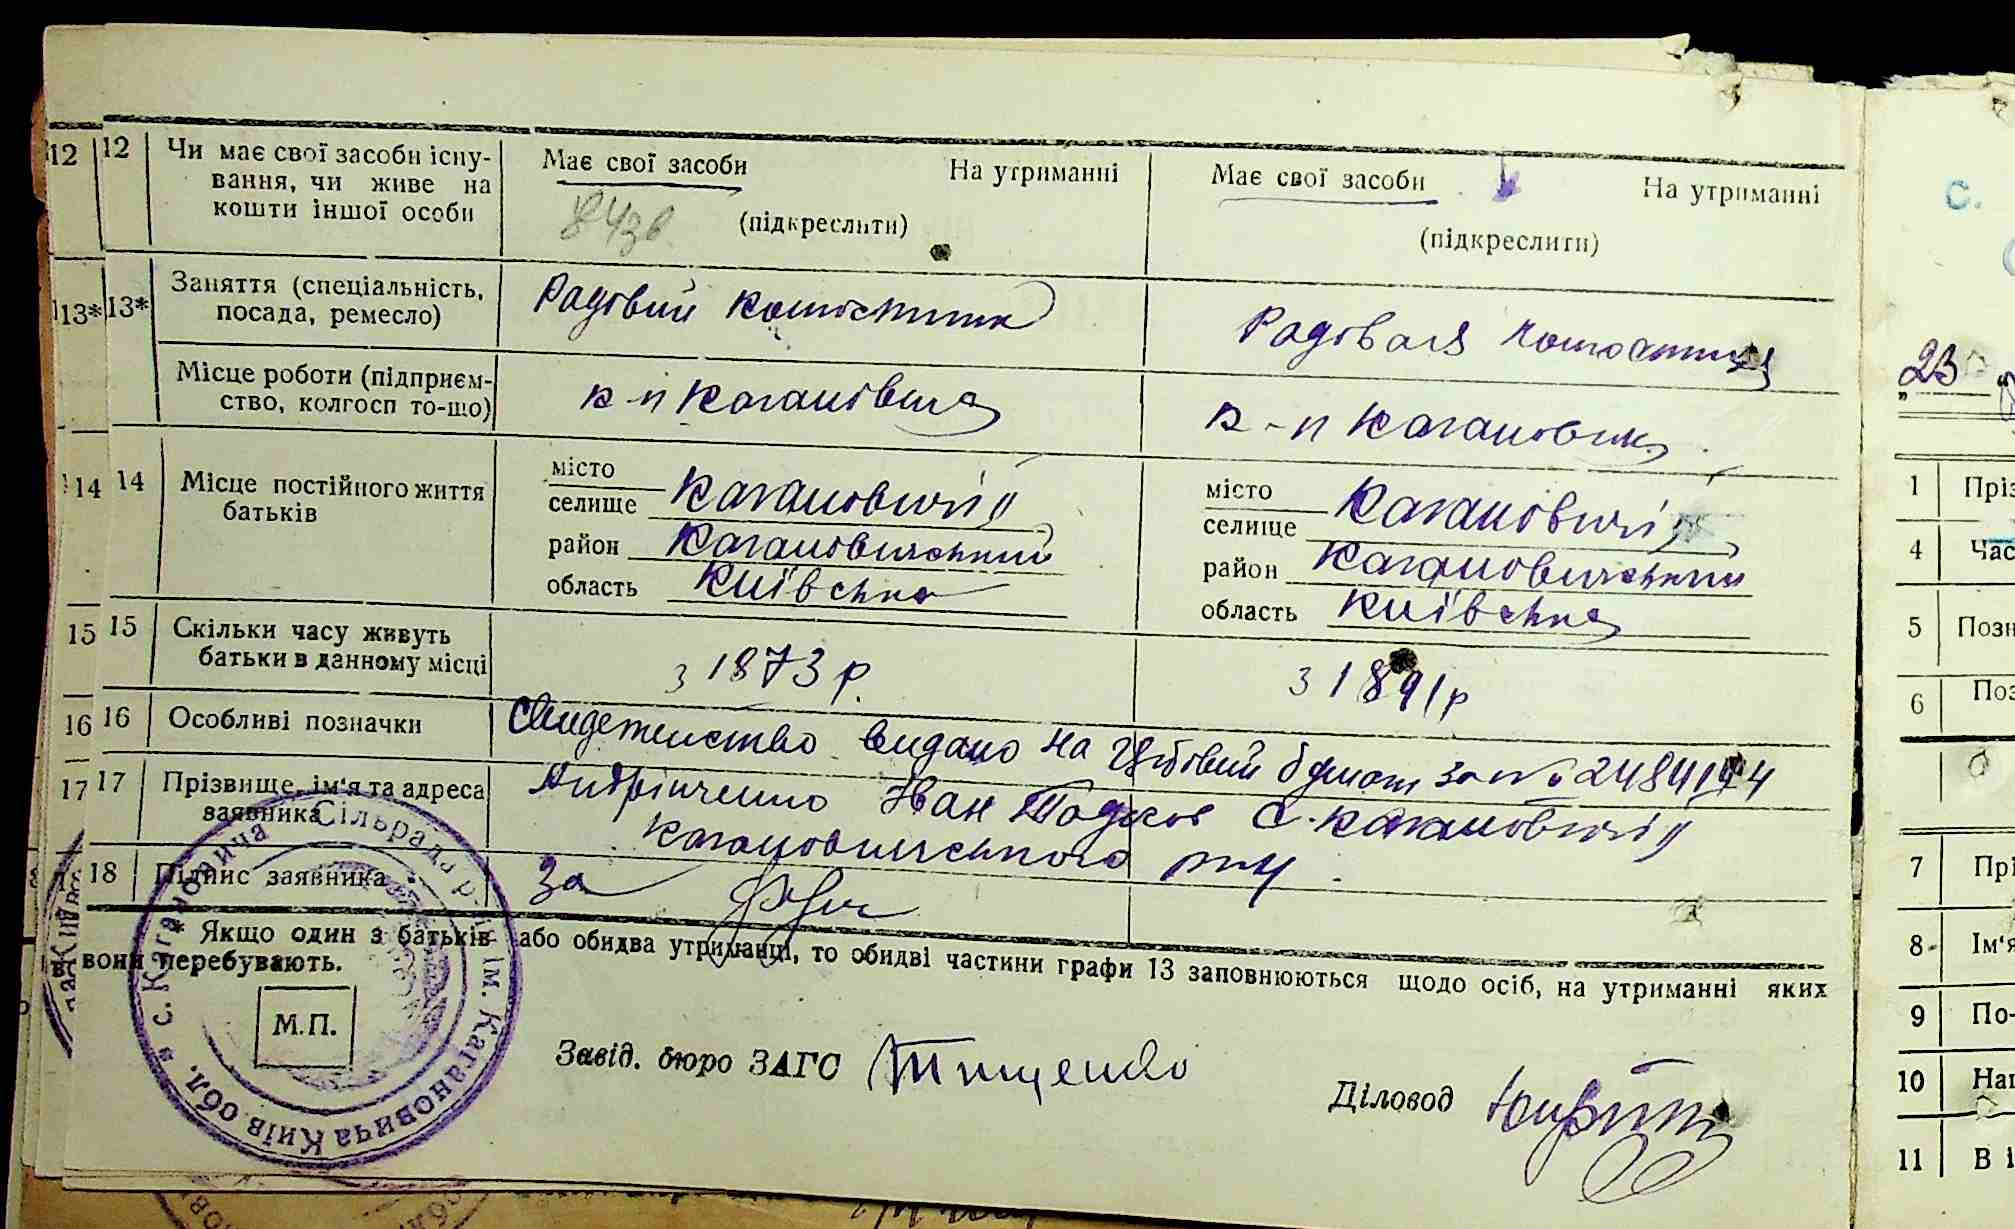 12 12 Чи має свої засоби існу-
вання, чи живе на
кошти іншої особи
Має свої засоби На утриманні
(підкреслити)
Має свої засоби На утриманні
(підкреслити)
13* 13* Заняття (спеціальність,
посада, ремесло)
Радовий
Радовая
Місце роботи (підприєм-
ство, колгосп то-що)
к-п Кагановича
к-п Кагановича
14 14 Місце постійного життя
батьків
місто
селище Кагановичі
район Кагановический
область Київська
місто
селище Кагановичі
район Кагановический
область Київська
15 15 Скільки часу живуть
батьки в данному місці
з 1873 р.
з 1891 р
16 16 Особливі позначки
видано на за №
17 17 Прізвище, ім'я та адреса
заявника
Іван с. Кагановичі
18 Підпис заявника
За
* Якщо один з батьків або обидва утриманці, то обидві частини графи 13 заповнюються щодо осіб, на утриманні яких
вони перебувають.
М.П.
Сільрада ім. Кагановича Київ обл.
с. Кагановича
Завід. бюро ЗАГС Тищенко
Діловод
С.
23
1 Пріз
4 Час
5 Позн
6 Поз
7 Прі
8 Ім'я
9 По-
10 Нац
11 В і